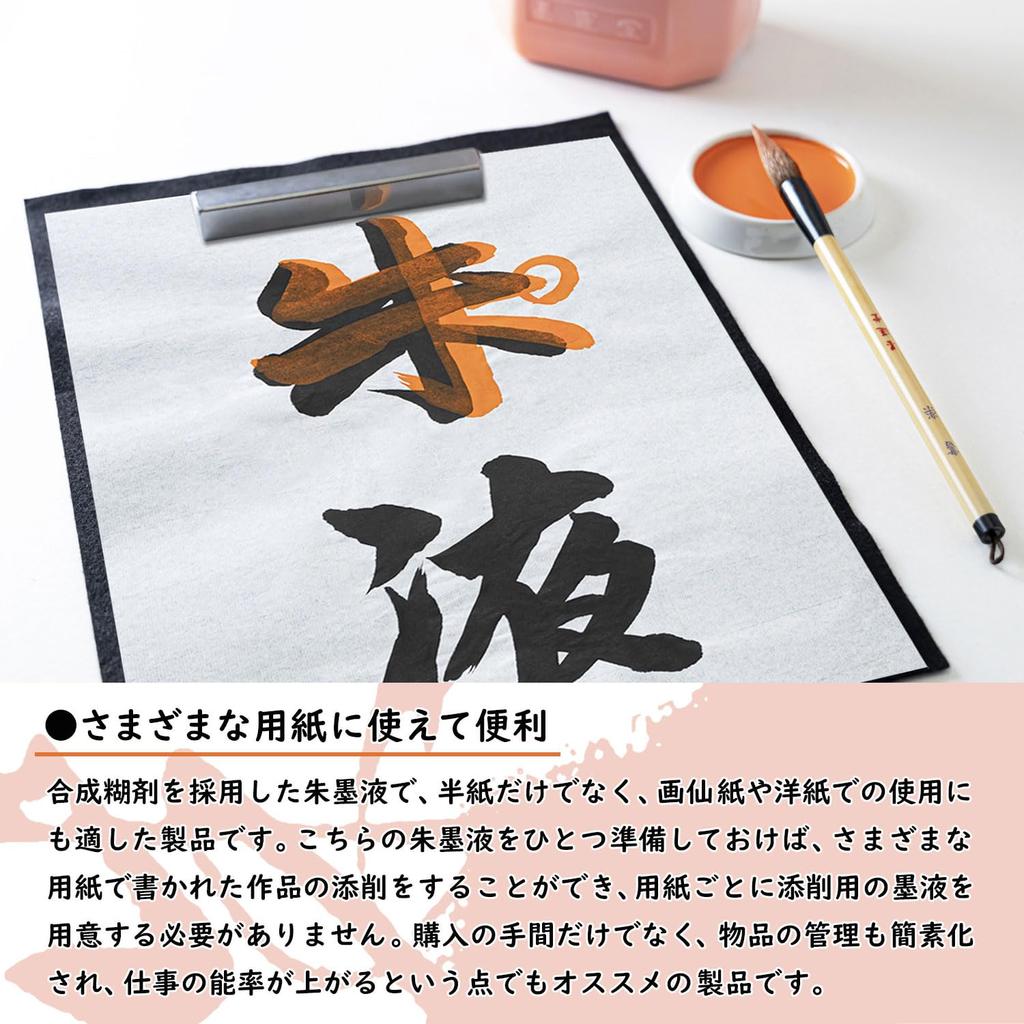 朱
液
●さまざまな用紙に使えて便利
合成糊剤を採用した朱墨液で、半紙だけでなく、画仙紙や洋紙での使用に
も適した製品です。こちらの朱墨液をひとつ準備しておけば、さまざまな
用紙で書かれた作品の添削をすることができ、用紙ごとに添削用の墨液を
用意する必要がありません。購入の手間だけでなく、物品の管理も簡素化
され、仕事の能率が上がるという点でもオススメの製品です。